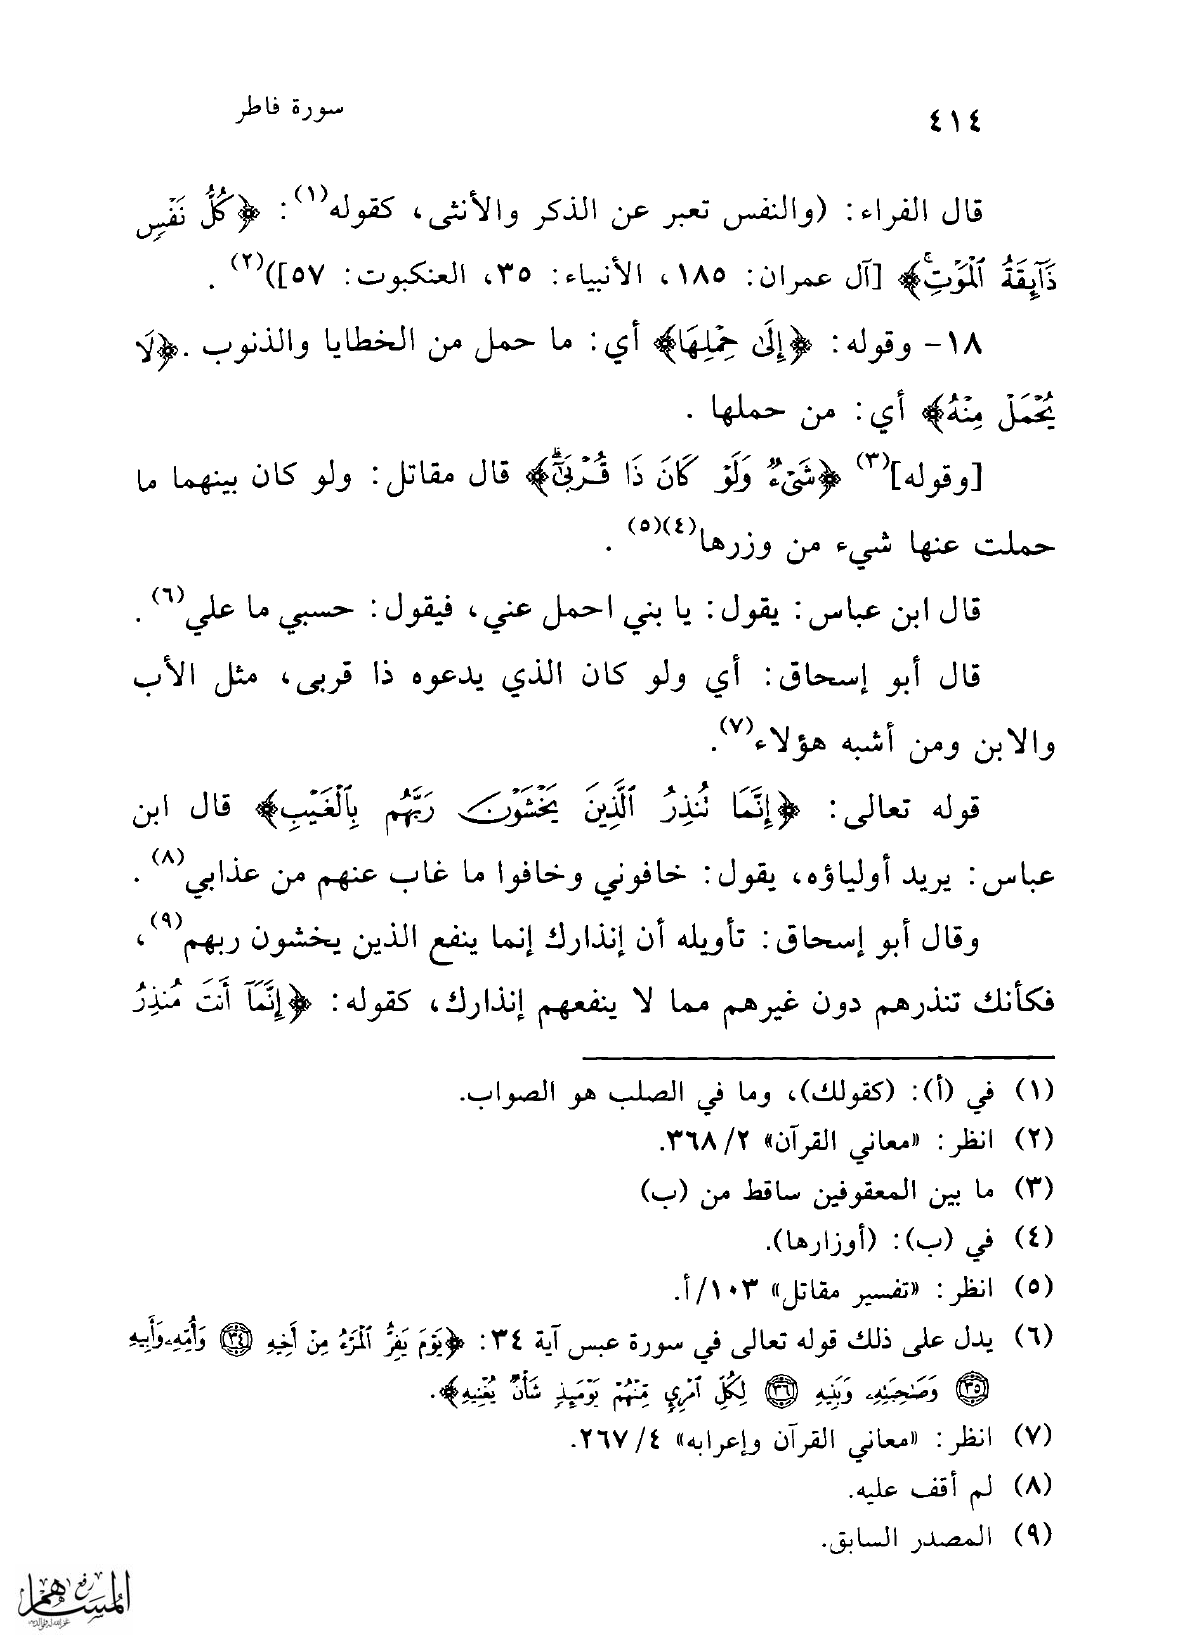 ٤١٤
سورة فاطر
قال الفراء: (والنفس تعبر عن الذكر والأنثى، كقوله(١): ﴿كُلُّ نَفْسٍ
ذَآئِقَةُ ٱلْمَوْتِ﴾ [آل عمران: ١٨٥، الأنبياء: ٣٥، العنكبوت: ٥٧])(٢).
١٨- وقوله: ﴿إِلَىٰ حِمْلِهَا﴾ أي: ما حمل من الخطايا والذنوب. ﴿لَا
يُحْمَلْ مِنْهُ﴾ أي: من حملها.
[وقوله](٣) ﴿شَىْءٌ وَلَوْ كَانَ ذَا قُرْبَىٰٓ﴾ قال مقاتل: ولو كان بينهما ما
حملت عنها شيء من وزرها(٤)(٥).
قال ابن عباس: يقول: يا بني احمل عني، فيقول: حسبي ما علي(٦).
قال أبو إسحاق: أي ولو كان الذي يدعوه ذا قربى، مثل الأب
والابن ومن أشبه هؤلاء(٧).
قوله تعالى: ﴿إِنَّمَا نُنذِرُ ٱلَّذِينَ يَخْشَوْنَ رَبَّهُم بِٱلْغَيْبِ﴾ قال ابن
عباس: يريد أولياؤه، يقول: خافوني وخافوا ما غاب عنهم من عذابي(٨).
وقال أبو إسحاق: تأويله أن إنذارك إنما ينفع الذين يخشون ربهم(٩)،
فكأنك تنذرهم دون غيرهم مما لا ينفعهم إنذارك، كقوله: ﴿إِنَّمَآ أَنتَ مُنذِرُ
(١) في (أ): (كقولك)، وما في الصلب هو الصواب.
(٢) انظر: «معاني القرآن» ٢/ ٣٦٨.
(٣) ما بين المعقوفين ساقط من (ب)
(٤) في (ب): (أوزارها).
(٥) انظر: «تفسير مقاتل» ١٠٣/أ.
(٦) يدل على ذلك قوله تعالى في سورة عبس آية ٣٤: ﴿يَوْمَ يَفِرُّ ٱلْمَرْءُ مِنْ أَخِيهِ ٣٤ وَأُمِّهِۦ وَأَبِيهِ
٣٥ وَصَٰحِبَتِهِۦ وَبَنِيهِ ٣٦ لِكُلِّ ٱمْرِئٍ مِّنْهُمْ يَوْمَئِذٍ شَأْنٌ يُغْنِيهِ﴾.
(٧) انظر: «معاني القرآن وإعرابه» ٤/ ٢٦٧.
(٨) لم أقف عليه.
(٩) المصدر السابق.
رفع
المساهم